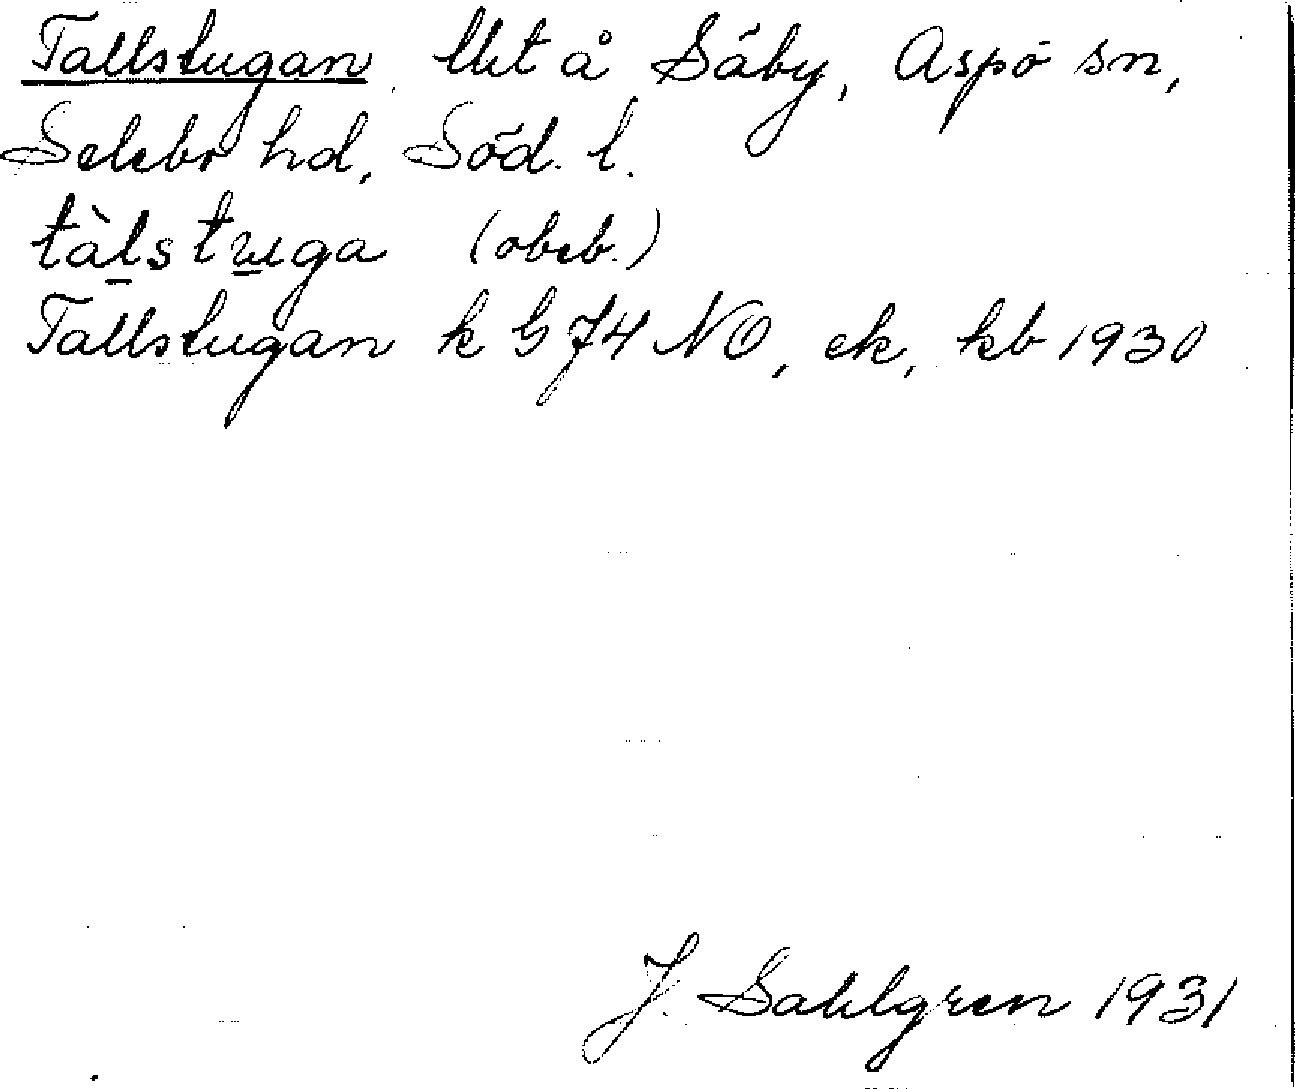 Tallstugan Uht å Säby, Aspö sn,
Selebr hd, Söd. l.
tàlstuga (obeb.)
Tallstugan k G 74 NO, ek, kb 1930
J. Sahlgren 1931